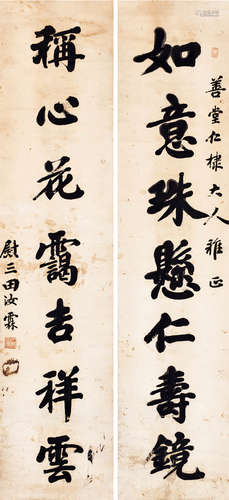 善堂仁棣大人雅正
如意珠懸仁壽鏡
稱心花靄吉祥雲
慰三田汝霖